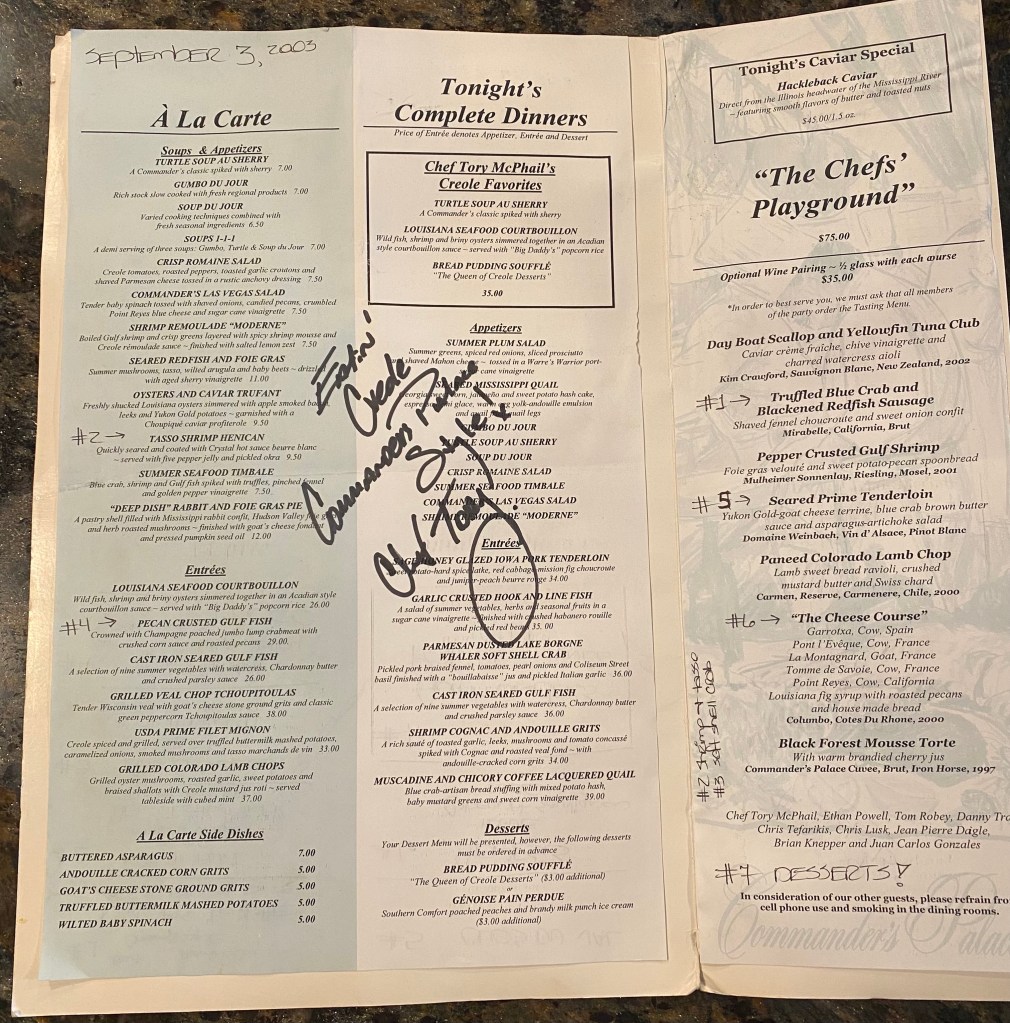 SEPTEMBER 3, 2003
À La Carte
Soups & Appetizers
TURTLE SOUP AU SHERRY
A Commander's classic spiked with sherry 7.00
GUMBO DU JOUR
Rich stock slow cooked with fresh regional products 7.00
SOUP DU JOUR
Varied cooking techniques combined with
fresh seasonal ingredients 6.50
SOUPS 1-1-1
A demi serving of three soups: Gumbo, Turtle & Soup du Jour 7.00
CRISP ROMAINE SALAD
Creole tomatoes, roasted peppers, toasted garlic croutons and
shaved Parmesan cheese tossed in a rustic anchovy dressing 7.50
COMMANDER'S LAS VEGAS SALAD
Tender baby spinach tossed with shaved onions, candied pecans, crumbled
Point Reyes blue cheese and sugar cane vinaigrette 7.50
SHRIMP REMOULADE "MODERNE"
Boiled Gulf shrimp and crisp greens layered with spicy shrimp mousse and
Creole rémoulade sauce ~ finished with salted lemon zest 7.50
SEARED REDFISH AND FOIE GRAS
Summer mushrooms, tasso, wilted arugula and baby beets ~ drizzled
with aged sherry vinaigrette 11.00
OYSTERS AND CAVIAR TRUFANT
Freshly shucked Louisiana oysters simmered with apple smoked
leeks and Yukon Gold potatoes ~ garnished with a
Choupique caviar profiterole 9.50
#2→ TASSO SHRIMP HENICAN
Quickly seared and coated with Crystal hot sauce beurre blanc
~ served with five pepper jelly and pickled okra 9.50
SUMMER SEAFOOD TIMBALE
Blue crab, shrimp and Gulf fish spiked with truffles, pinched fennel
and golden pepper vinaigrette 7.50
"DEEP DISH" RABBIT AND FOIE GRAS PIE
A pastry shell filled with Mississippi rabbit confit, Hudson Valley foie
and herb roasted mushrooms ~ finished with goat's cheese fondant
and pressed pumpkin seed oil 12.00
Entrées
LOUISIANA SEAFOOD COURTBOUILLON
Wild fish, shrimp and briny oysters simmered together in an Acadian style
courtbouillon sauce ~ served with "Big Daddy's" popcorn rice 26.00
#4→ PECAN CRUSTED GULF FISH
Crowned with Champagne poached jumbo lump crabmeat with
crushed corn sauce and roasted pecans 29.00
CAST IRON SEARED GULF FISH
A selection of nine summer vegetables with watercress, Chardonnay butter
and crushed parsley sauce 26.00
GRILLED VEAL CHOP TCHOUPITOULAS
Tender Wisconsin veal with goat's cheese stone ground grits and classic
green peppercorn Tchoupitoulas sauce 38.00
USDA PRIME FILET MIGNON
Creole spiced and grilled, served over truffled buttermilk mashed potatoes,
caramelized onions, smoked mushrooms and tasso marchands de vin 33.00
GRILLED COLORADO LAMB CHOPS
Grilled oyster mushrooms, roasted garlic, sweet potatoes and
braised shallots with Creole mustard jus roti ~ served
tableside with cubed mint 37.00
A La Carte Side Dishes
BUTTERED ASPARAGUS 7.00
ANDOUILLE CRACKED CORN GRITS 5.00
GOAT'S CHEESE STONE GROUND GRITS 5.00
TRUFFLED BUTTERMILK MASHED POTATOES 5.00
WILTED BABY SPINACH 5.00
Tonight's
Complete Dinners
Price of Entrée denotes Appetizer, Entrée and Dessert
Chef Tory McPhail's
Creole Favorites
TURTLE SOUP AU SHERRY
A Commander's classic spiked with sherry
LOUISIANA SEAFOOD COURTBOUILLON
Wild fish, shrimp and briny oysters simmered together in an Acadian
style courtbouillon sauce ~ served with "Big Daddy's" popcorn rice
BREAD PUDDING SOUFFLÉ
"The Queen of Creole Desserts"
35.00
Appetizers
SUMMER PLUM SALAD
Summer greens, spiced red onions, sliced prosciutto
shaved Mahon cheese ~ tossed in a Warre's Warrior port-
cane vinaigrette
MISSISSIPPI QUAIL
and sweet potato hash cake,
glace, yolk-andouille emulsion
and quail legs
GUMBO DU JOUR
TURTLE SOUP AU SHERRY
SOUP DU JOUR
CRISP ROMAINE SALAD
SUMMER SEAFOOD TIMBALE
COMMANDER'S LAS VEGAS SALAD
SHRIMP REMOULADE "MODERNE"
Eatin'
Creole
Commanders Palace
Style!
Chef Tory
Entrées
SAGE HONEY GLAZED IOWA PORK TENDERLOIN
latke, red cabbage-mission fig choucroute
and juniper-peach beurre rouge 34.00
GARLIC CRUSTED HOOK AND LINE FISH
A salad of summer vegetables, herbs and seasonal fruits in a
sugar cane vinaigrette ~ finished with crushed habanero rouille
and pickled red beans 35.00
PARMESAN DUSTED LAKE BORGNE
WHALER SOFT SHELL CRAB
Pickled pork braised fennel, tomatoes, pearl onions and Coliseum Street
basil finished with a "bouillabaisse" jus and pickled Italian garlic 36.00
CAST IRON SEARED GULF FISH
A selection of nine summer vegetables with watercress, Chardonnay butter
and crushed parsley sauce 36.00
SHRIMP COGNAC AND ANDOUILLE GRITS
A rich sauté of toasted garlic, leeks, mushrooms and tomato concassé
spiked with Cognac and roasted veal fond ~ with
andouille-cracked corn grits 34.00
MUSCADINE AND CHICORY COFFEE LACQUERED QUAIL
Blue crab-artisan bread stuffing with mixed potato hash,
baby mustard greens and sweet corn vinaigrette 39.00
Desserts
Your Dessert Menu will be presented, however, the following desserts
must be ordered in advance
BREAD PUDDING SOUFFLÉ
"The Queen of Creole Desserts" ($3.00 additional)
or
GÉNOISE PAIN PERDUE
Southern Comfort poached peaches and brandy milk punch ice cream
($3.00 additional)
Tonight's Caviar Special
Hackleback Caviar
Direct from the Illinois headwater of the Mississippi River
~ featuring smooth flavors of butter and toasted nuts
$45.00/1.5 oz.
"The Chefs'
Playground"
$75.00
Optional Wine Pairing ~ ½ glass with each course
$35.00
*In order to best serve you, we must ask that all members
of the party order the Tasting Menu.
Day Boat Scallop and Yellowfin Tuna Club
Caviar crème fraîche, chive vinaigrette and
charred watercress aioli
Kim Crawford, Sauvignon Blanc, New Zealand, 2002
#1→ Truffled Blue Crab and
Blackened Redfish Sausage
Shaved fennel choucroute and sweet onion confit
Mirabelle, California, Brut
Pepper Crusted Gulf Shrimp
Foie gras velouté and sweet potato-pecan spoonbread
Mulheimer Sonnenlay, Riesling, Mosel, 2001
#5→ Seared Prime Tenderloin
Yukon Gold-goat cheese terrine, blue crab brown butter
sauce and asparagus-artichoke salad
Domaine Weinbach, Vin d'Alsace, Pinot Blanc
Paneed Colorado Lamb Chop
Lamb sweet bread ravioli, crushed
mustard butter and Swiss chard
Carmen, Reserve, Carmenere, Chile, 2000
#6→ "The Cheese Course"
Garrotxa, Cow, Spain
Pont l'Evêque, Cow, France
La Montagnard, Goat, France
Tomme de Savoie, Cow, France
Point Reyes, Cow, California
Louisiana fig syrup with roasted pecans
and house made bread
Columbo, Cotes Du Rhone, 2000
#2 shrimp & tasso
#3 soft shell crab
Black Forest Mousse Torte
With warm brandied cherry jus
Commander's Palace Cuvee, Brut, Iron Horse, 1997
Chef Tory McPhail, Ethan Powell, Tom Robey, Danny
Chris Tefarikis, Chris Lusk, Jean Pierre Daigle,
Brian Knepper and Juan Carlos Gonzales
#7 DESSERTS!
In consideration of our other guests, please refrain
cell phone use and smoking in the dining rooms.
Commander's Palace